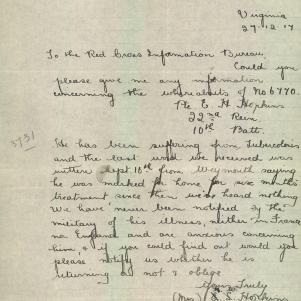 Virginia
27-12-17
To the Red Cross Information Bureau
Could you
please give me any information
concerning the whereabouts of No 6770.
Pte E. H. Hopkins
22nd Rein.
10th Batt.
3731
He has been suffering from Tuberculosis
and the last word we received was
written Sept 16th from Weymouth saying
he was marked for home for six months
treatment since then we've heard nothing
We have never been notified by the
military of his illness, neither in France
nor England and are anxious concerning
him, & if you could find out would you
please notify us whether he is
returning or not & oblige
Yours Truly
(Mrs) S. Hopkins